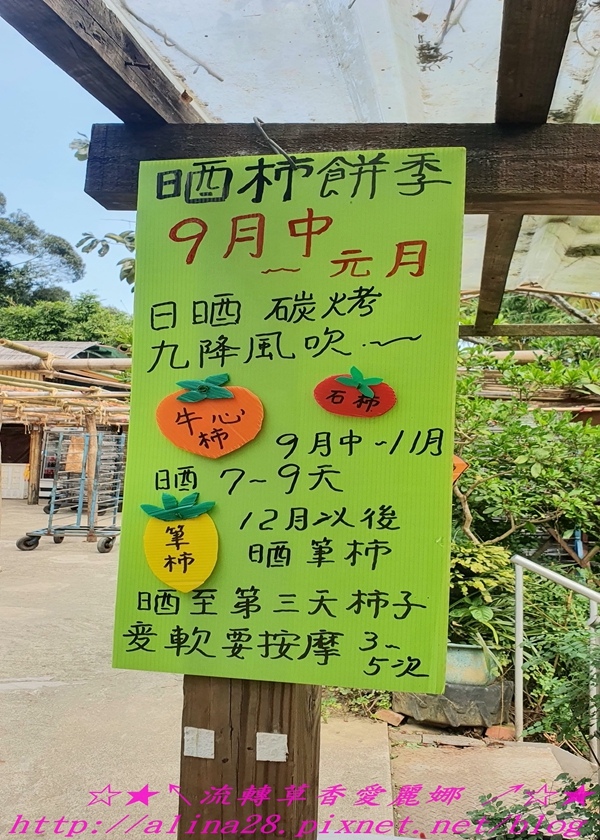 晒柿餅季
9月中
~元月
日晒 碳烤
九降風吹~
牛心
柿
石柿
9月中~11月
晒 7~9天
筆
柿
12月以後
晒筆柿
晒至第三天柿子
変軟要按摩 3~
5次
☆★↖流轉草香愛麗娜↗☆★
http://alina28.pixnet.net/blog